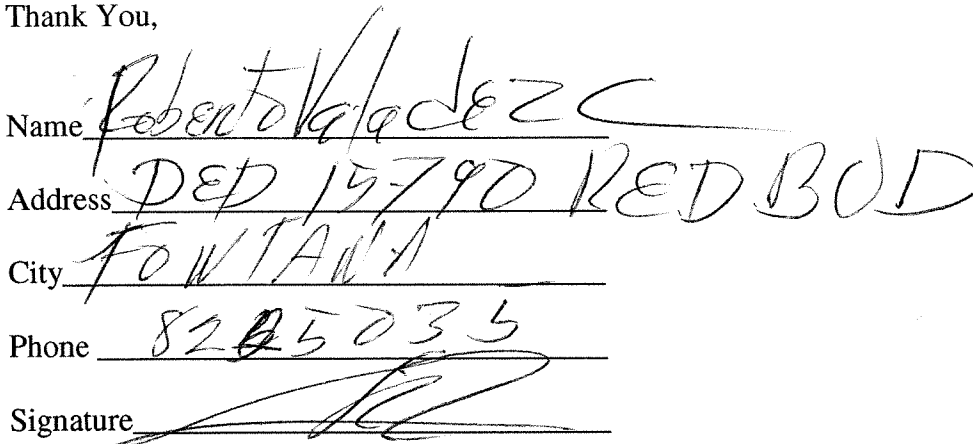 Thank You,
Name Roberto Valadez C
Address DED 15790 RED BUD
City FONTANA
Phone 8225035
Signature